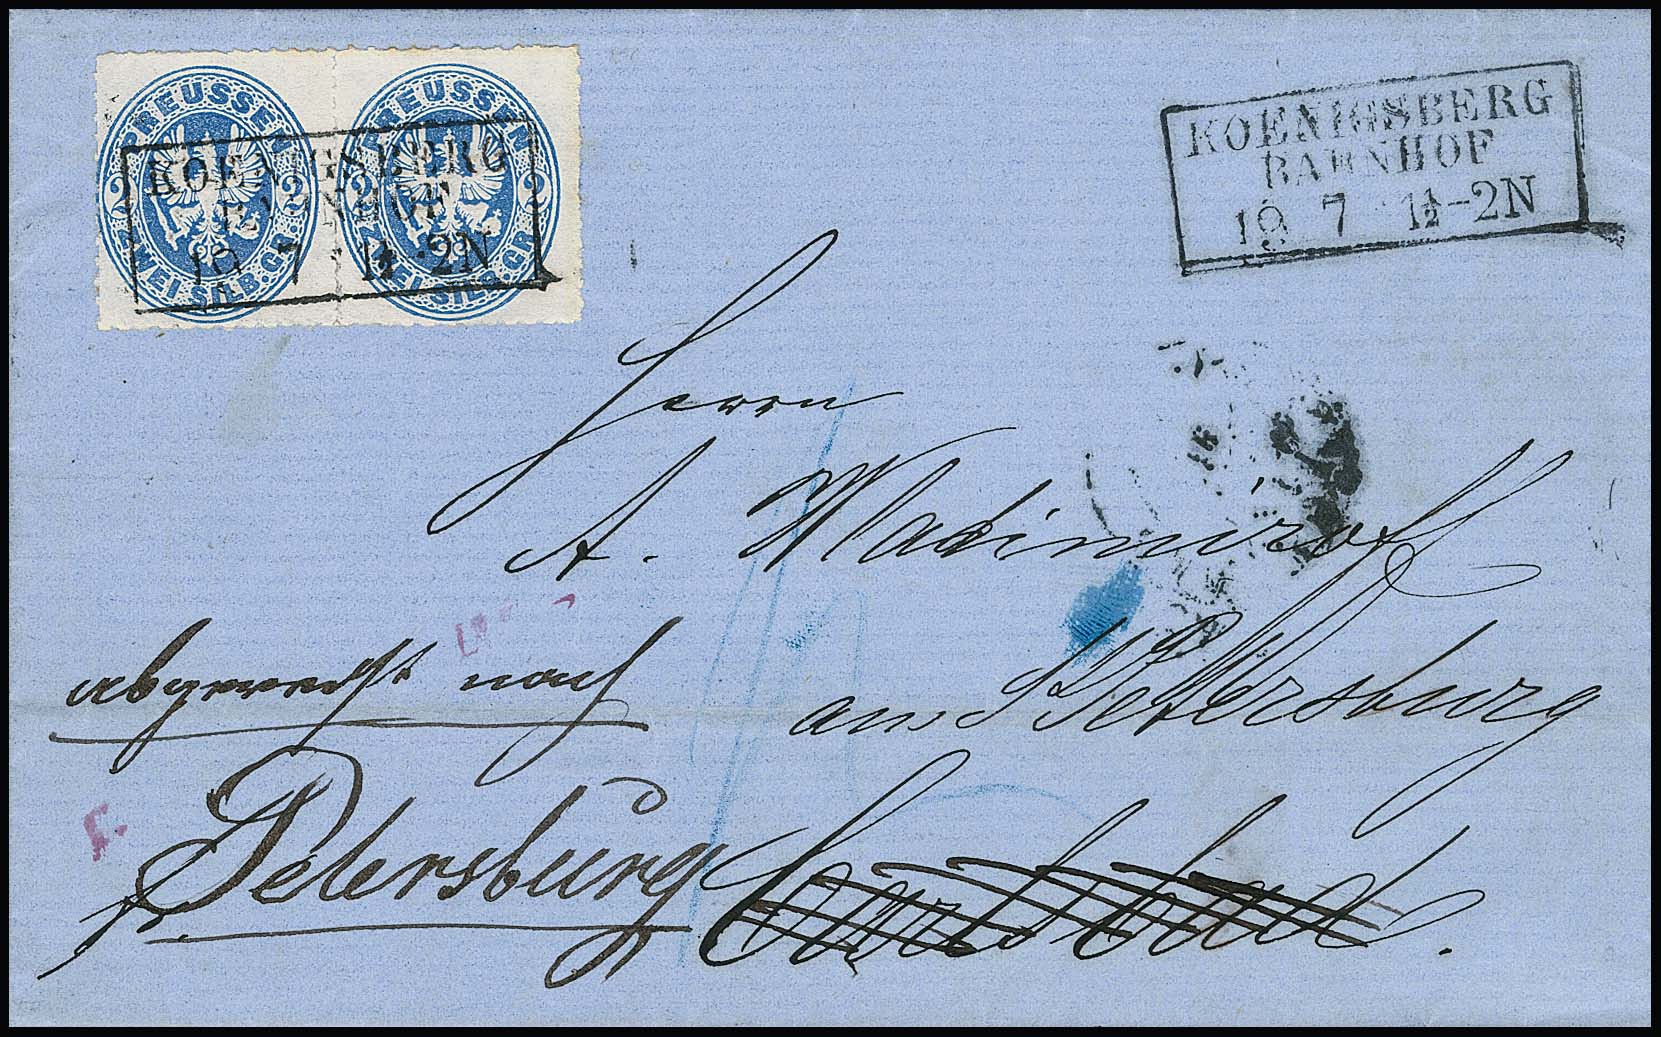 PREUSSEN
2 2
ZWEI SILB.GR.
PREUSSEN
2 2
ZWEI SILB.GR.
KOENIGSBERG
BAHNHOF
19 7 1½-2N
KOENIGSBERG
BAHNHOF
19 7 1½-2N
Herrn
A. Wladimiroff
aus St Petersburg
Carlsbad.
abgereist nach
St. Petersburg